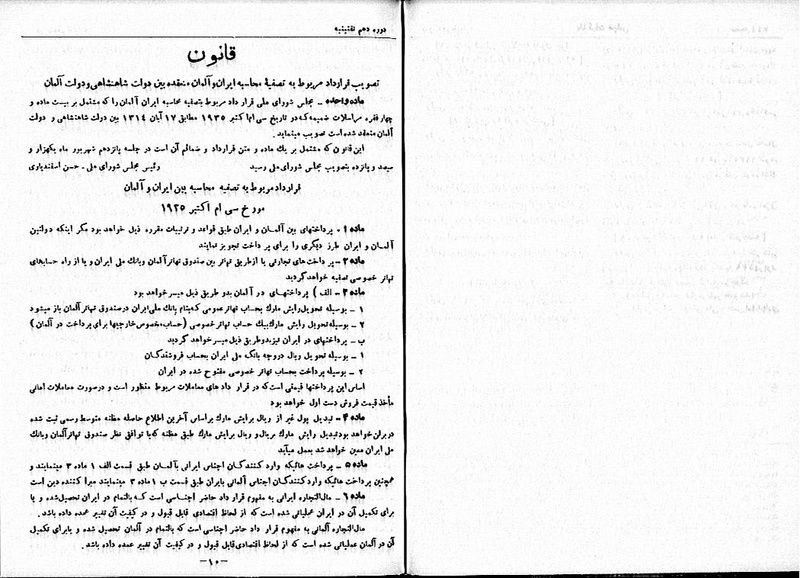 دوره دهم تقنینیه
قانون
تصویب قرارداد مربوط به تصفیهٔ محاسبه ایران و آلمان منعقده بین دولت شاهنشاهی و دولت آلمان
ماده واحده - مجلس شورای ملی قرار داد مربوط بتصفیه محاسبه ایران آلمان را که مشتمل بر بیست ماده و
چهار فقره مراسلات ضمیمه که در تاریخ سی ام اکتبر ۱۹۳۵ مطابق ۱۷ آبان ۱۳۱۴ بین دولت شاهنشاهی و دولت
آلمان منعقد شده است تصویب مینماید.
این قانون که مشتمل بر یک ماده و متن قرارداد و ضمائم آن است در جلسه پانزدهم شهریور ماه یکهزار و
سیصد و پانزده بتصویب مجلس شورای ملی رسید رئیس مجلس شورای ملی - حسن اسفندیاری
قرارداد مربوط به تصفیه محاسبه بین ایران و آلمان
مورخ سی ام اکتبر ۱۹۳۵
ماده ۱ - پرداختهای بین آلمان و ایران طبق قواعد و ترتیبات مقرره ذیل خواهد بود مگر اینکه دولتین
آلمان و ایران طرز دیگری را برای پرداخت تجویز نمایند
ماده ۲ - پرداخت های تجارتی یا از طریق تهاتر بین صندوق تهاتر آلمان و بانک ملی ایران و یا از راه حسابهای
تهاتر خصوصی تصفیه خواهد گردید
ماده ۳ - الف) پرداختهای در آلمان بدو طریق ذیل میسر خواهد بود
۱ - بوسیله تحویل رایش مارک بحساب تهاتر عمومی که بنام بانک ملی ایران در صندوق تهاتر آلمان باز میشود
۲ - بوسیله تحویل رایش مارک بیک حساب تهاتر خصوصی (حساب مخصوص خارجیها برای پرداخت در آلمان)
ب - پرداختهای در ایران نیز بدو طریق ذیل میسر خواهد گردید
۱ - بوسیله تحویل ریال در وجه بانک ملی ایران بحساب فروشندگان
۲ - بوسیله پرداخت بحساب تهاتر خصوصی مفتوح شده در ایران
اساس این پرداختها قیمتی است که در قرار داد های معاملات مربوط منظور است و در صورت معاملات امانی
مأخذ قیمت فروش دست اول خواهد بود
ماده ۴ - تبدیل پول غیر از ریال برایش مارک بر اساس آخرین اطلاع حاصله مظنه متوسط رسمی ثبت شده
در برلن خواهد بود تبدیل رایش مارک بریال و ریال برایش مارک طبق مظنه که با توافق نظر صندوق تهاتر آلمان و بانک
ملی ایران معین خواهد شد بعمل میآید
ماده ۵ - پرداخت هائیکه وارد کنندگان اجناس ایرانی بآلمان طبق قسمت الف ۱ ماده ۳ مینمایند و
همچنین پرداخت هائیکه وارد کنندگان اجناس آلمانی بایران طبق قسمت ب ۱ ماده ۳ مینمایند مبرا کننده دین است
ماده ۶ - مال التجاره ایرانی به مفهوم قرار داد حاضر اجناسی است که بالتمام در ایران تحصیل شده و یا
برای تکمیل آن در ایران عملیاتی شده است که از لحاظ اقتصادی قابل قبول و در کیفیت آن تغییر عمده داده باشد.
مال التجاره آلمانی به مفهوم قرار داد حاضر اجناسی است که بالتمام در آلمان تحصیل شده و یا برای تکمیل
آن در آلمان عملیاتی شده است که از لحاظ اقتصادی قابل قبول و در کیفیت آن تغییر عمده داده باشد.
-۱۰-